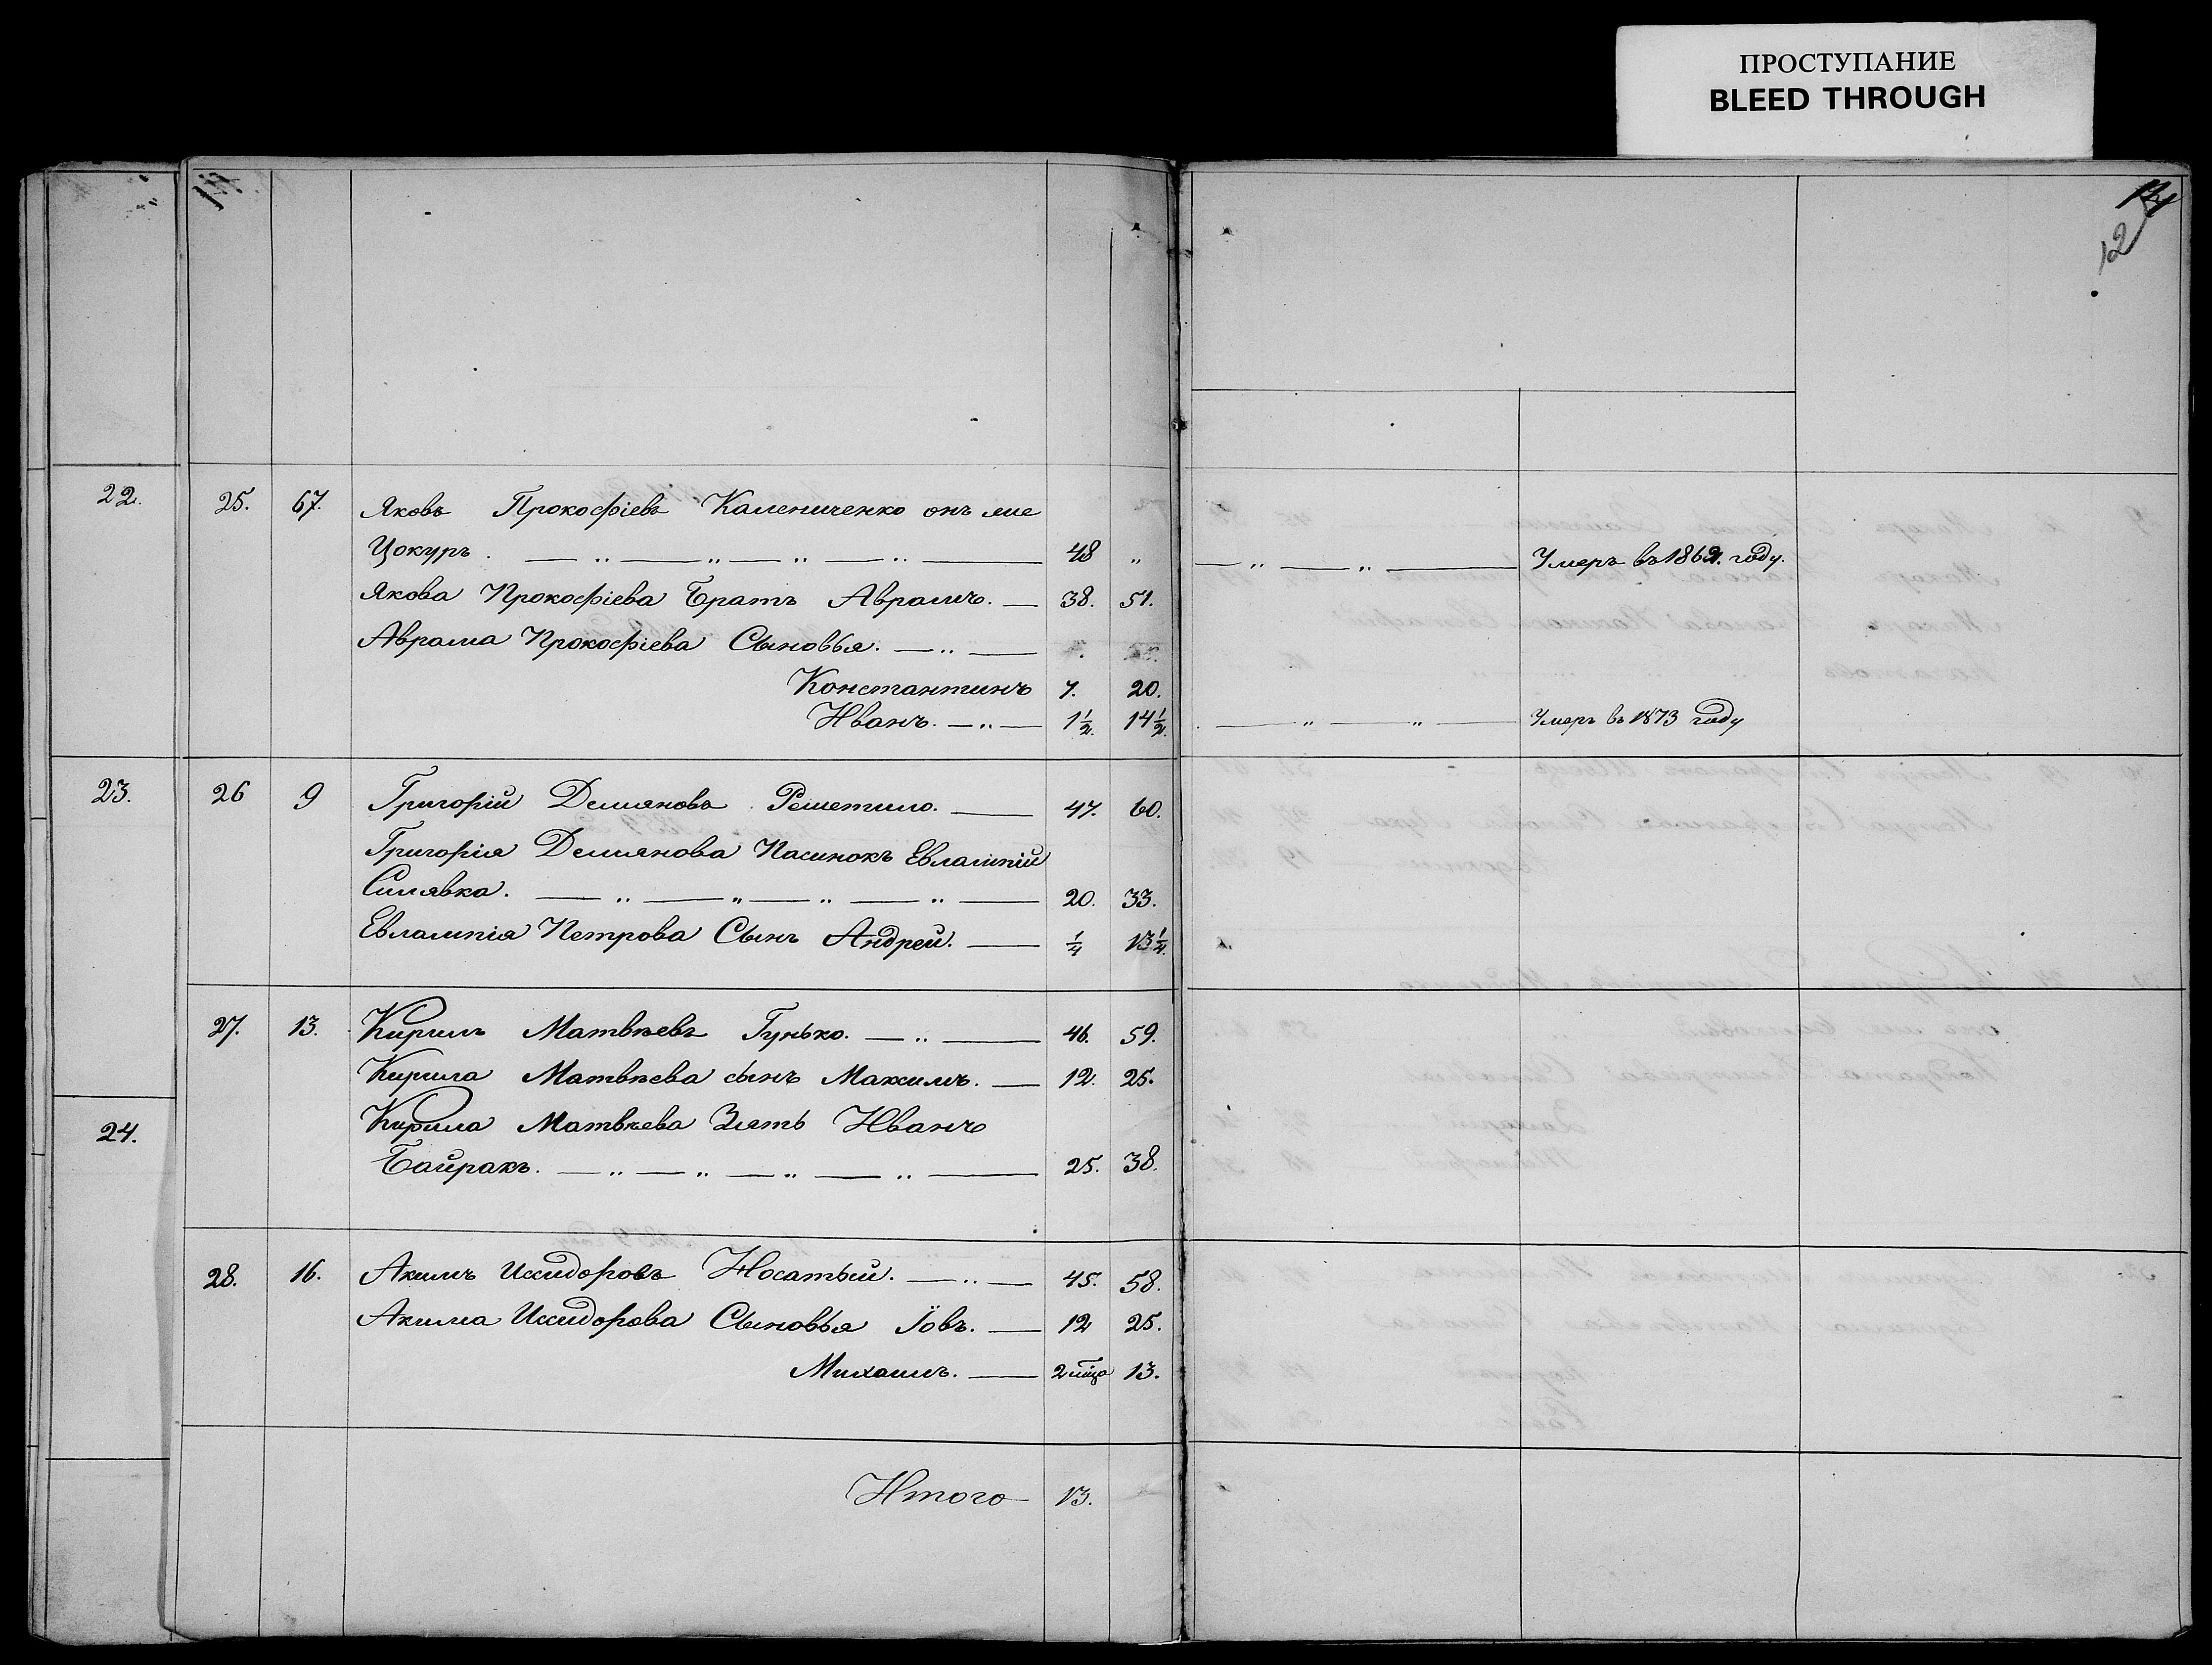 ПРОСТУПАНИЕ
BLEED THROUGH
14
12
22.
25. 67. Яковъ Прокофіевъ Калениченко онъ же
Цокуръ. — „ — „ — „ — „ — 48 „ — „ — „ — Умеръ въ 1862. году.
Якова Прокофіева Братъ Аврамъ. — 38. 51.
Аврама Прокофіева Сыновья. — „ —
Константинъ 7. 20.
Иванъ. — „ — 1½. 14½. — „ — „ — Умеръ въ 1873 году
23.
26 9 Григорій Демяновъ Решетило. — 47. 60.
Григорія Демянова Пасинокъ Евлампій
Силявка. — „ — „ — „ — „ — 20. 33.
Евлампія Петрова Сынъ Андрей. — ¼ 13¼.
27. 13. Кирилъ Матвѣевъ Гунько. — „ — 46. 59.
Кирила Матвѣева сынъ Максимъ. — 12. 25.
24.
Кирила Матвѣева Зять Иванъ
Байракъ. — „ — „ — „ — „ — 25. 38.
28. 16. Акимъ Исидоровъ Носатый. — „ — 45. 58.
Акима Исидорова Сыновья Іовъ. — 12 25.
Михаилъ. — 2 мца 13.
Итого 13.